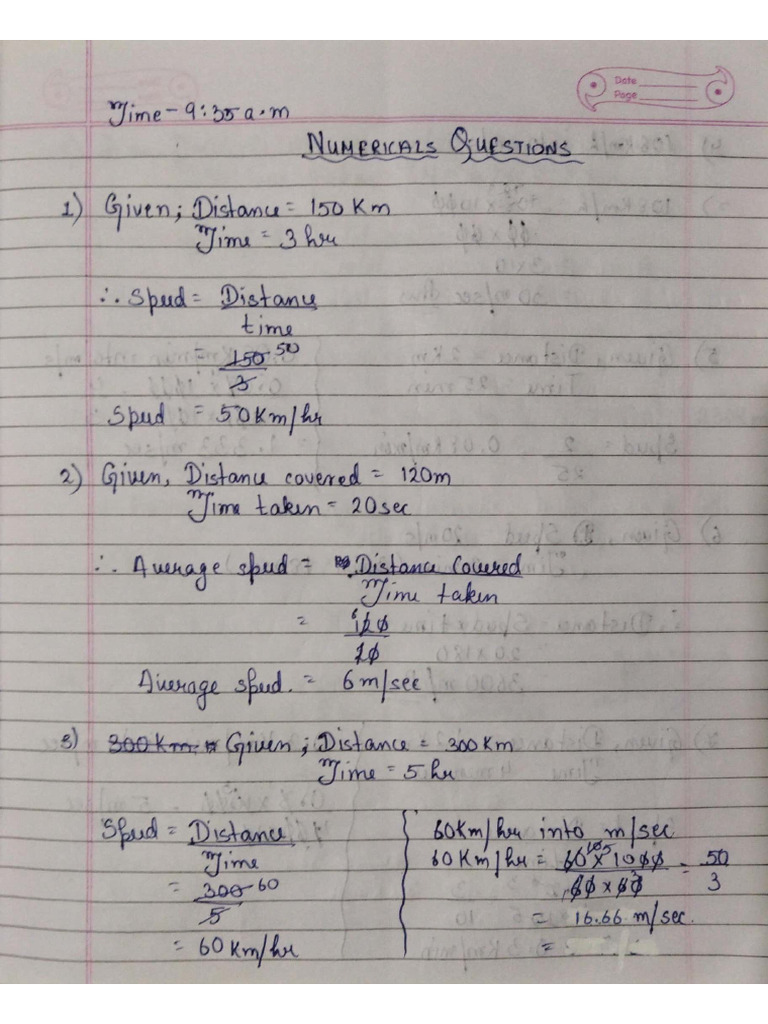 Date
Page
Time - 9:35 a.m
NUMERICALS QUESTIONS
1) Given; Distance = 150 Km
Time = 3 hr
∴ Speed = Distance
time
= 150 50
3
Speed = 50 Km/hr
2) Given, Distance covered = 120m
Time taken = 20 sec
∴ Average speed = Distance Covered
Time taken
= 6 120
20
Average speed. = 6 m/sec
3) 300 Km. Given; Distance = 300 Km
Time = 5 hr
Speed = Distance
Time
= 300 60
5
= 60 Km/hr
60 Km/hr into m/sec
60 Km/hr = 60 x 1000 = 50
60 x 60 3
= 16.66 m/sec.
=